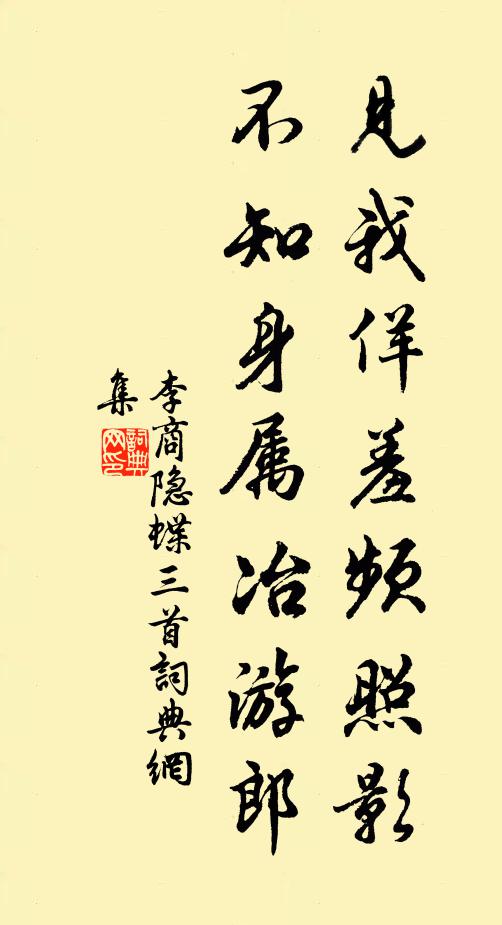 見我佯羞頻照影
不知身属冶游郎
李商隐蝶三首詞典網
集
詞典
网印